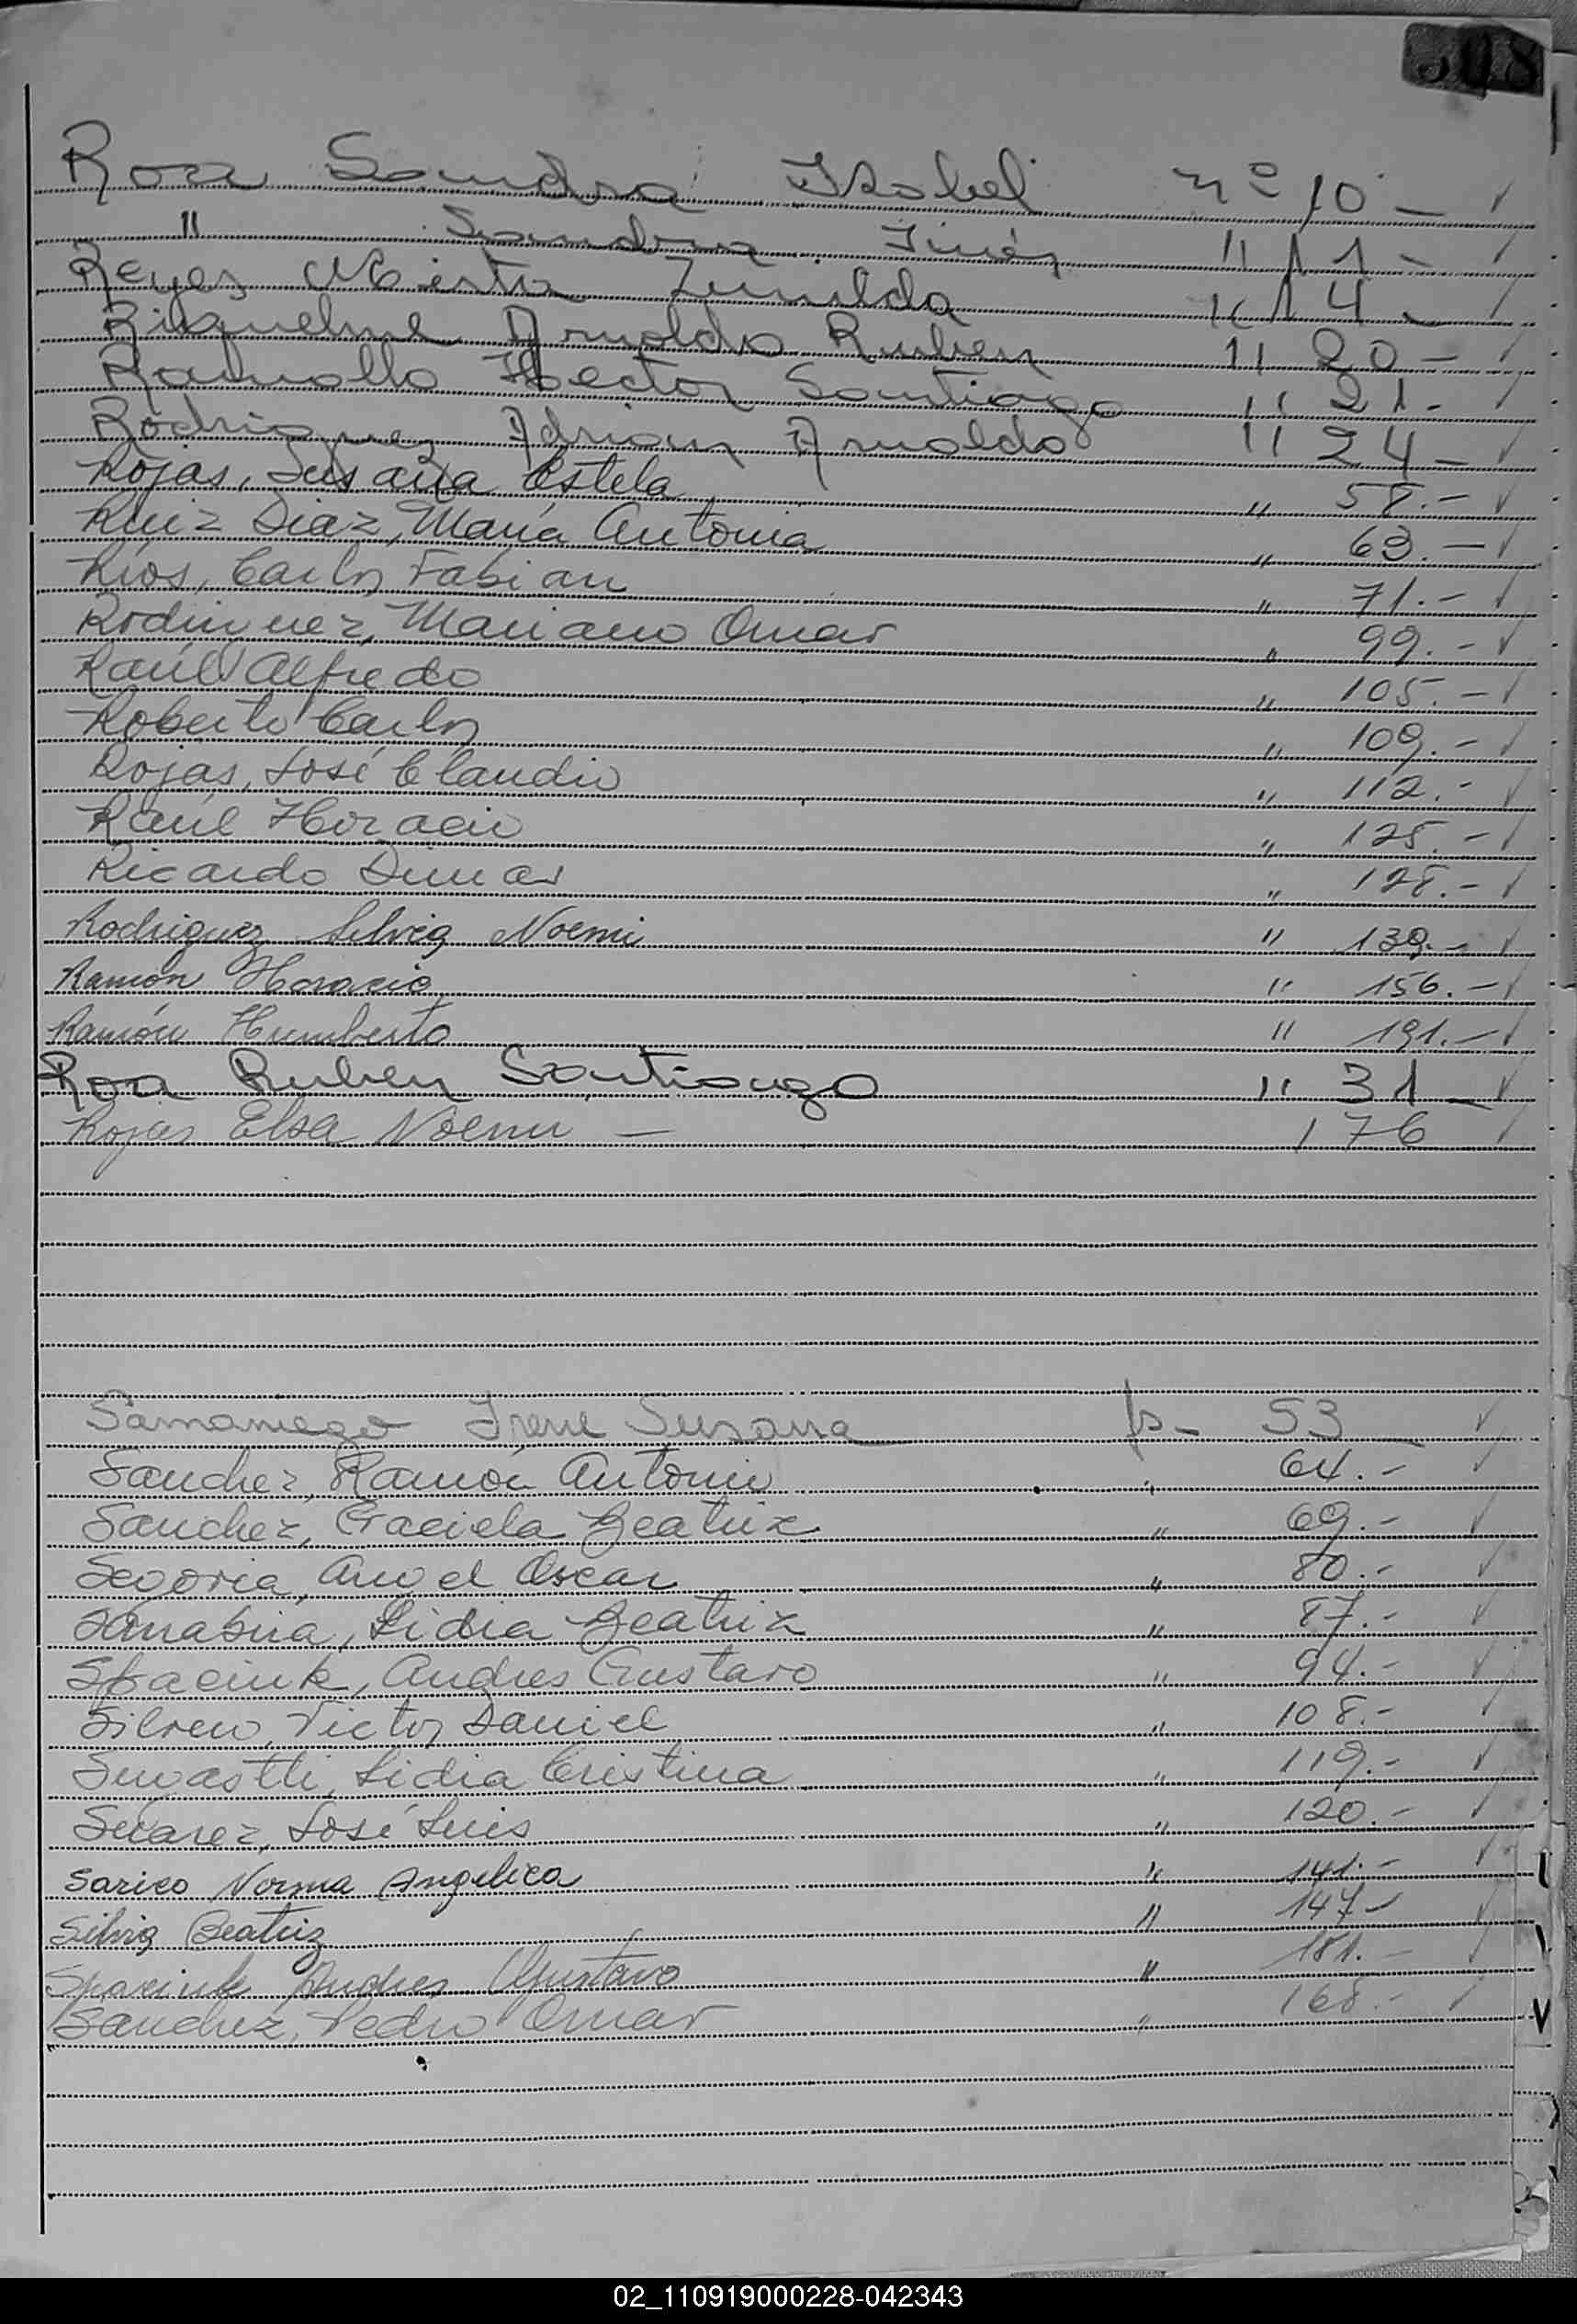 Roa Sandra Isabel nº 10 - ✓
" Sandra Inés " 11 - ✓
Reyes Mirta Zunilda " 14 - ✓
Riquelme Arnoldo Ruben " 20 - ✓
Ramallo Hector Santiago " 21 - ✓
Rodriguez Adrian Arnoldo " 24 - ✓
Rojas, Susana Estela " 58.- ✓
Ruiz Diaz, María Antonia " 63.- ✓
Ríos, Carlos Fabian " 71.- ✓
Rodriguez, Mariano Omar " 99.- ✓
Raúl Alfredo " 105.- ✓
Roberto Carlos " 109.- ✓
Rojas, José Claudio " 112.- ✓
Raúl Horacio " 125.- ✓
Ricardo Dimar " 128.- ✓
Rodriguez Silvia Noemi " 139.- ✓
Ramón Horacio " 156.- ✓
Ramón Humberto " 191.- ✓
Roa Ruben Santiago " 31 - ✓
Rojas Elsa Noemi - 176 ✓
Samaniego Irene Susana p- 53 ✓
Sanchez, Ramón Antonio " 64.- ✓
Sanchez, Graciela Beatriz " 69.- ✓
Segovia, Angel Oscar " 80.- ✓
Sanabria, Lidia Beatriz " 87.- ✓
Spaciuk, Andres Gustavo " 94.- ✓
Silvero, Victor Daniel " 108.- ✓
Lidia Cristina " 119.- ✓
Suarez, José Luis " 120.- ✓
Sarico Norma Angelica " 141.- ✓
Silvia Beatriz " 147- ✓
Spaciuk Andres Gustavo " 181.- ✓
Sanchez, Pedro Omar " 168.- ✓
02_110919000228-042343